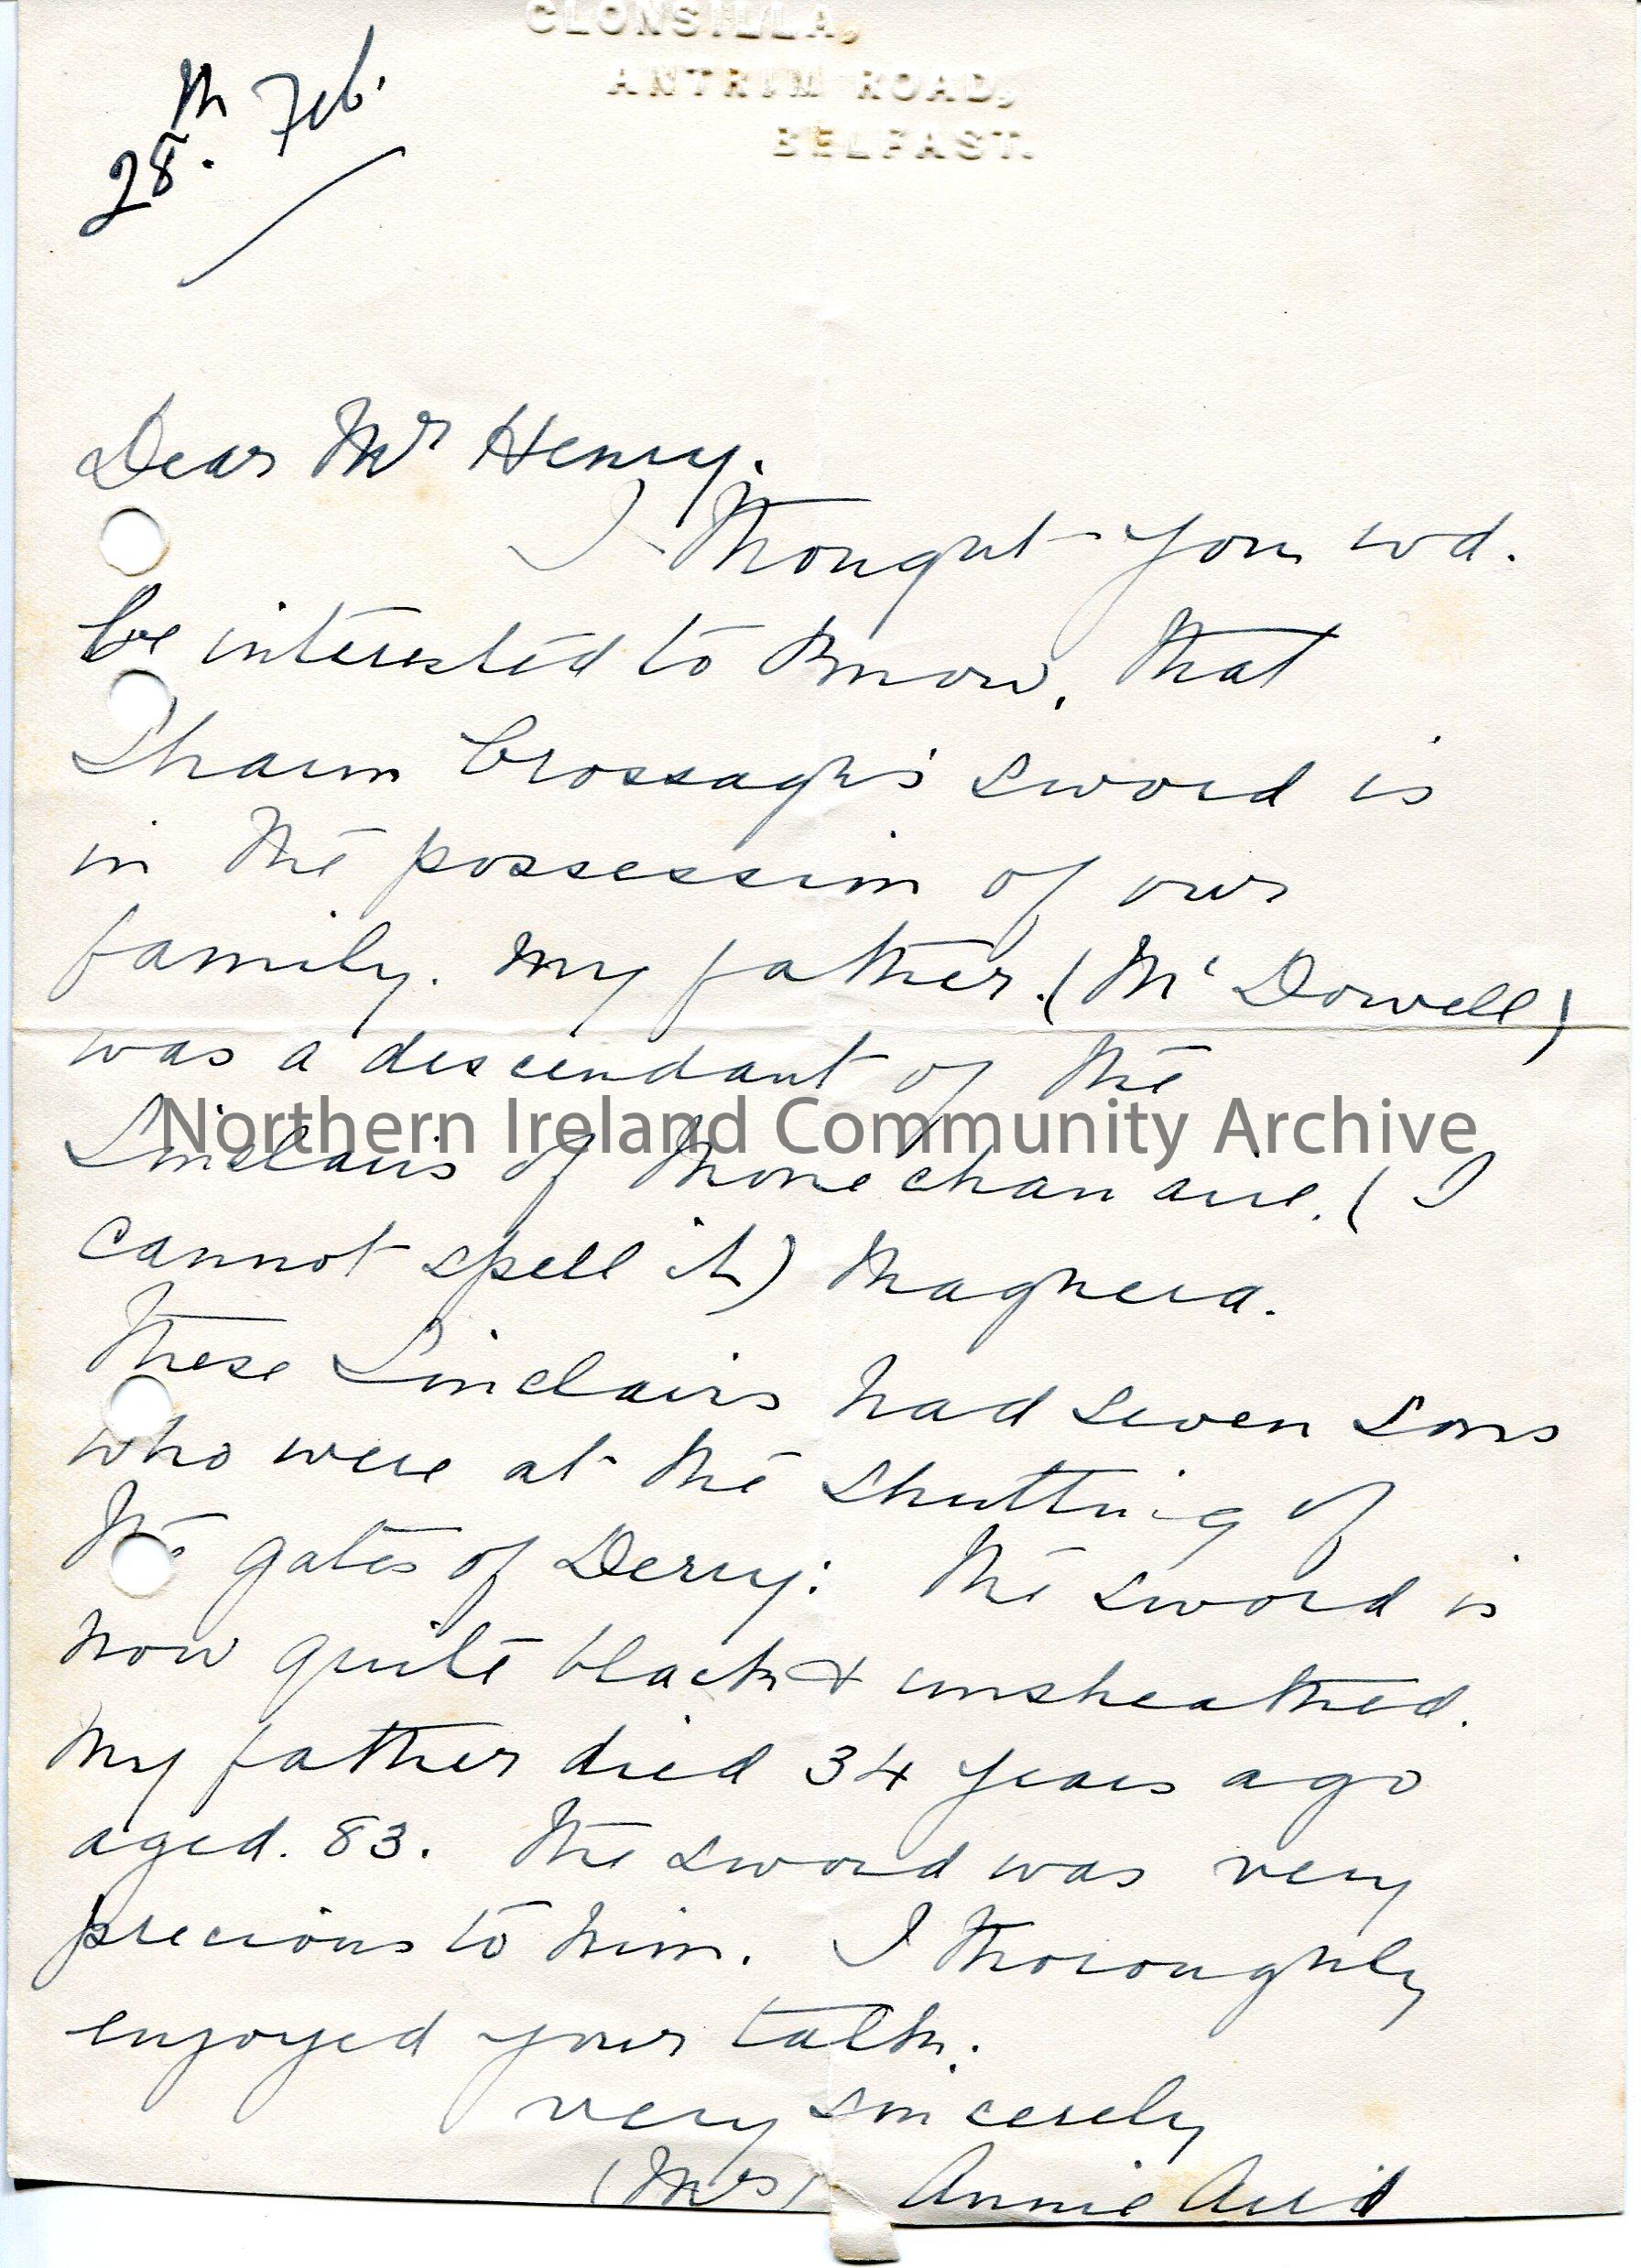 CLONSILLA,
ANTRIM ROAD,
BELFAST.
28th. Feb.
Dear Mr Henry.
I thought you wd.
be interested to know, that
Shaun Crossagh's sword is
in the possession of our
family. My father. (McDowell)
was a descendant of the
Northern Ireland Community Archive
Sinclairs of Monechanaire. (I
cannot spell it) Maghera.
These Sinclairs had seven sons
who were at the shutting of
the gates of Derry: The sword is
now quite black & unsheathed.
My father died 34 years ago
aged. 83. The sword was very
precious to him. I thoroughly
enjoyed your talk.
very sincerely
(Mrs) Annie